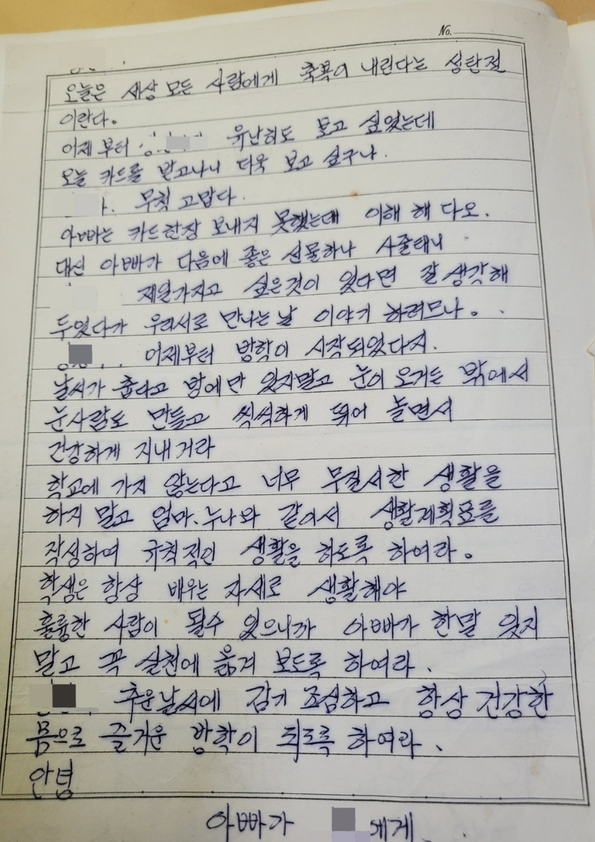 No.
오늘은 세상 모든 사람에게 축복이 내린다는 성탄절
이란다.
어제부터 유난히도 보고 싶었는데
오늘 카드를 받고나니 더욱 보고 싶구나.
무척 고맙다.
아빠는 카드한장 보내지 못했는데 이해 해 다오.
대신 아빠가 다음에 좋은 선물하나 사줄테니
제일가지고 싶은것이 있다면 잘 생각해
두었다가 우리서로 만나는 날 이야기 하려므나.
어제부터 방학이 시작되었다지.
날씨가 춥다고 방에만 있지말고 눈이 오거든 밖에서
눈사람도 만들고 씩씩하게 뛰어 놀면서
건강하게 지내거라
학교에 가지 않는다고 너무 무질서한 생활을
하지 말고 엄마.누나와 같이서 생활계획표를
작성하여 규칙적인 생활을 하도록 하여라.
학생은 항상 배우는 자세로 생활해야
훌륭한 사람이 될수 있으니까 아빠가 한말 잊지
말고 꼭 실천에 옮겨 보도록 하여라.
추운날씨에 감기 조심하고 항상 건강한
몸으로 즐거운 방학이 되도록 하여라.
안녕
아빠가 에게.